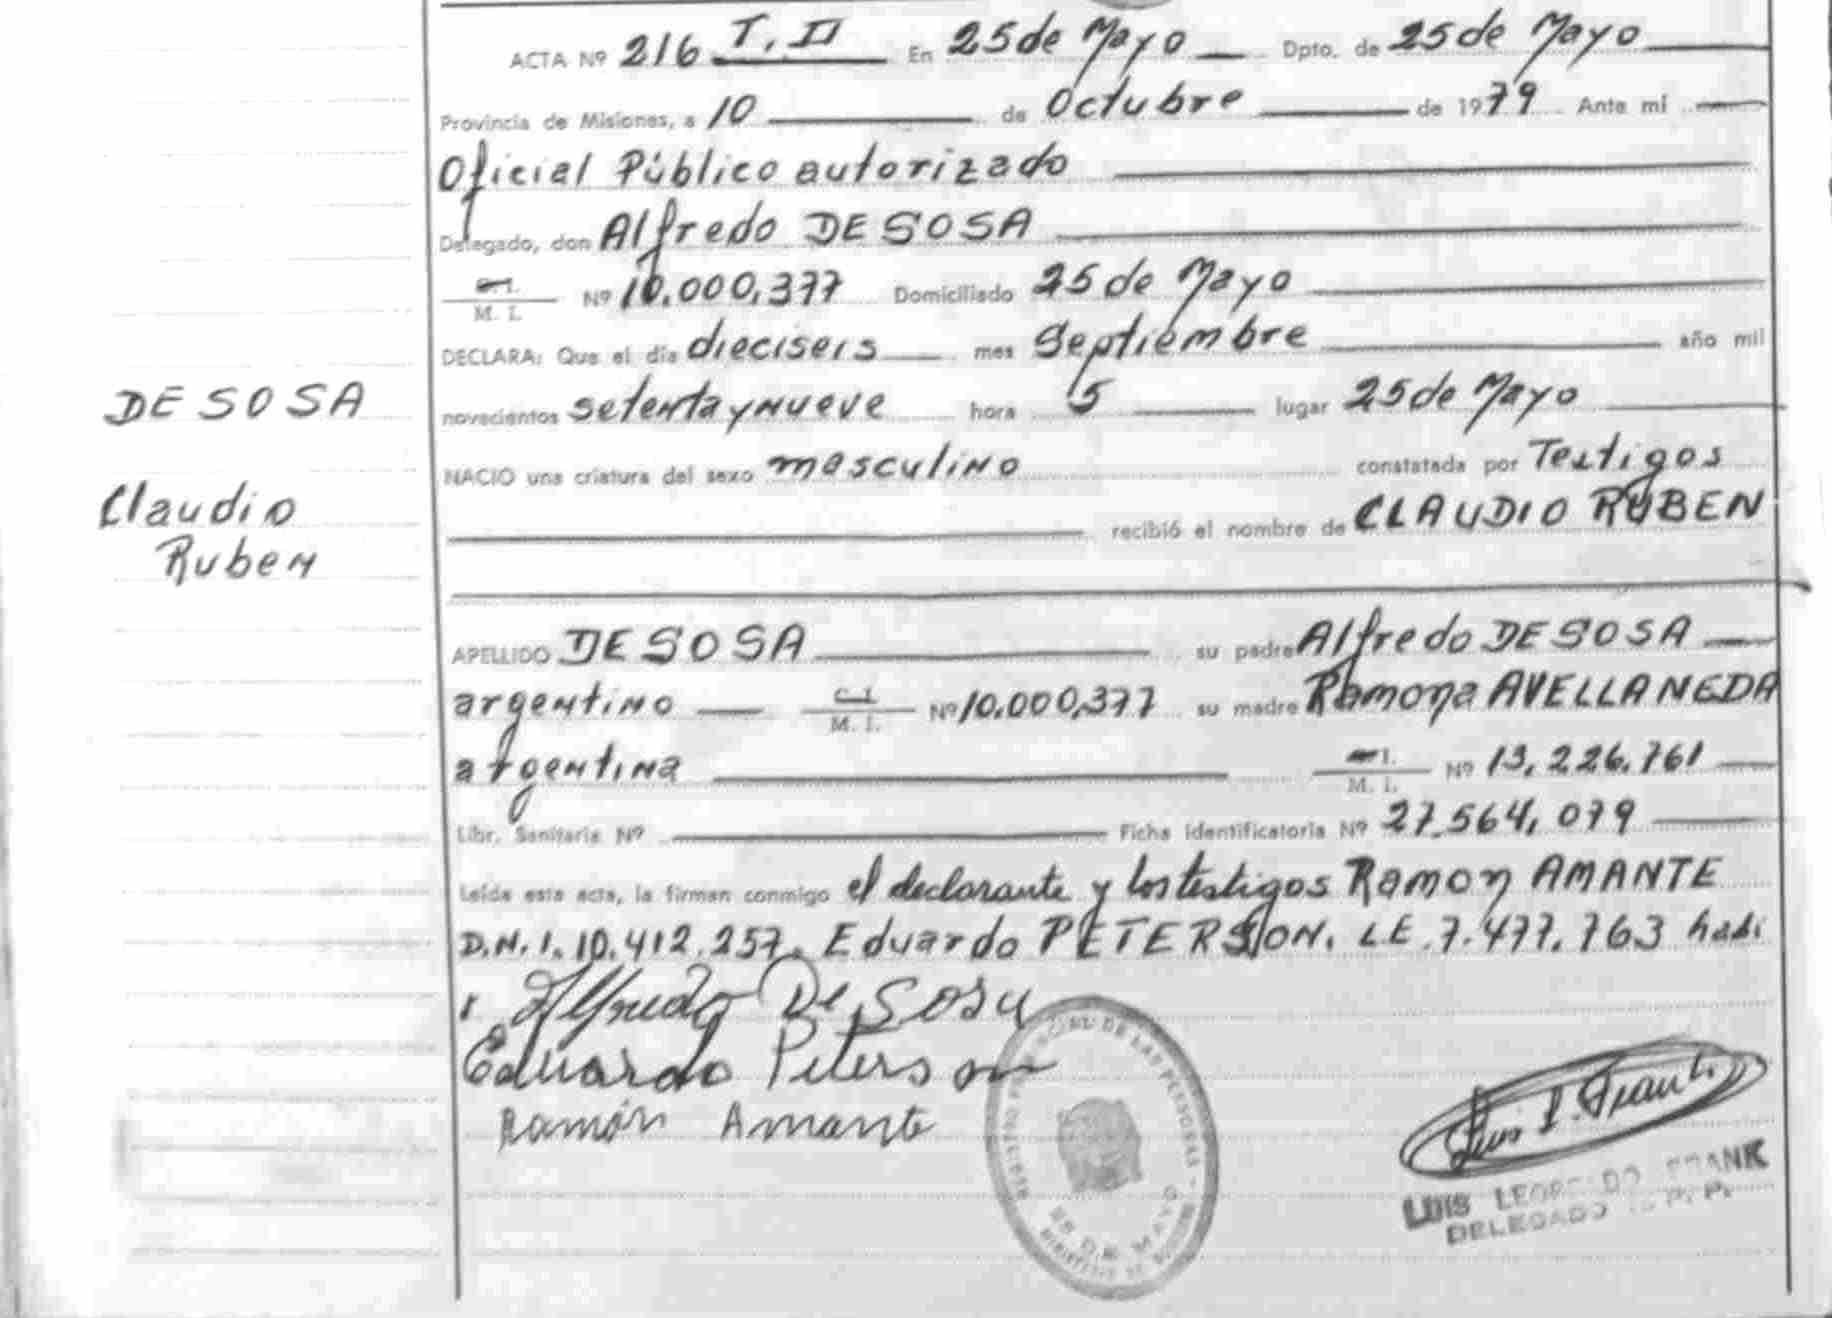 ACTA Nº 216 T. II En 25 de Mayo Dpto. de 25 de Mayo
Provincia de Misiones, a 10 de Octubre de 1979 Ante mí
Oficial Público autorizado
Delegado, don Alfredo DE SOSA
C. I.
M. I. Nº 10.000,377 Domiciliado 25 de Mayo
DECLARA: Que el día dieciseis mes Septiembre año mil
novecientos setenta y nueve hora 5 lugar 25 de Mayo
NACIO una criatura del sexo masculino constatada por Testigos
recibió el nombre de CLAUDIO RUBEN
DE SOSA
Claudio
Ruben
APELLIDO DE SOSA su padre Alfredo DE SOSA
argentino C. I. M. I. Nº 10.000,377 su madre Ramona AVELLANEDA
argentina C. I. M. I. Nº 13,226.761
Libr. Sanitaria Nº Ficha Identificatoria Nº 27.564,079
Leída esta acta, la firman conmigo el declarante y los testigos Ramon AMANTE
D.N.I. 10.412.257. Eduardo PETERSON. LE.7.477.763 habi
Alfredo De Sosa
Eduardo Peterson
Ramón Amante
25 DE MAYO
LUIS LEOPOLDO FRANK
DELEGADO